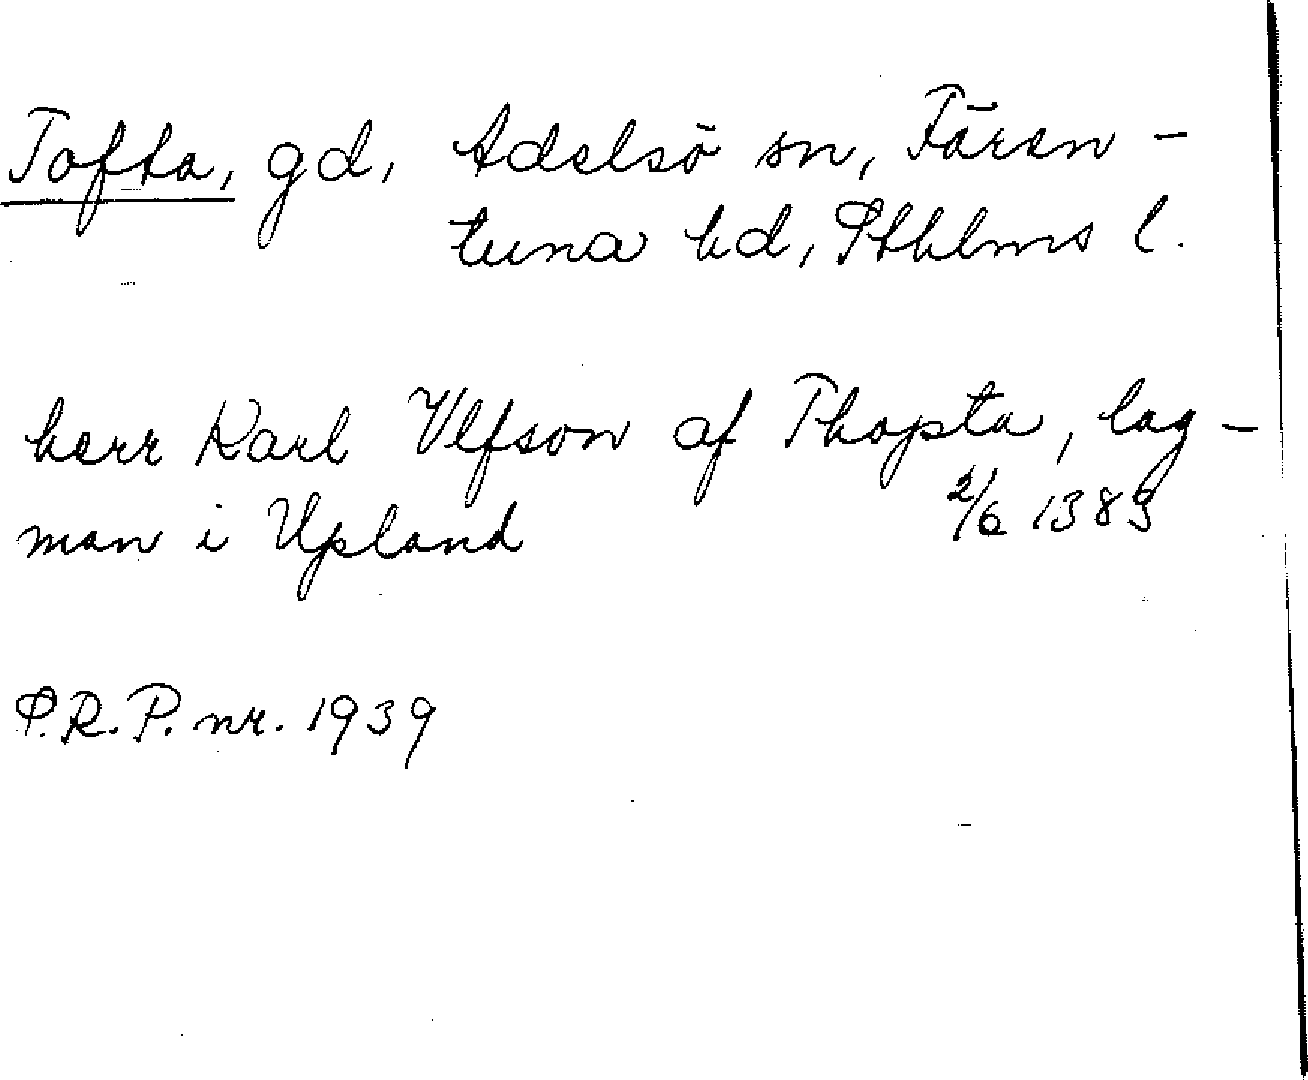 Tofta, gd, Adelsö sn, Fären-
tuna hd, Sthlms l.
herr Karl Vlfson af Thopta, lag-
man i Upland 2/6 1383
S.R.P. nr. 1939